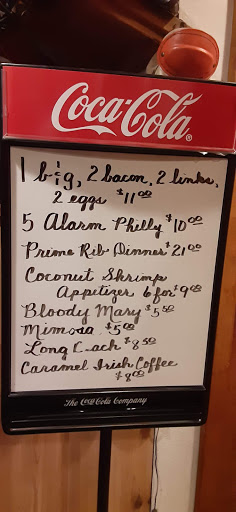 Coca-Cola
1 big, 2 bacon, 2 links,
2 eggs $11.00
5 Alarm Philly $10.00
Prime Rib Dinner $21.00
Coconut Shrimp
Appetizer 6 for $9.00
Bloody Mary $5.50
Mimosa $5.00
Long $8.50
Caramel Irish Coffee
$8.00
The Coca-Cola Company